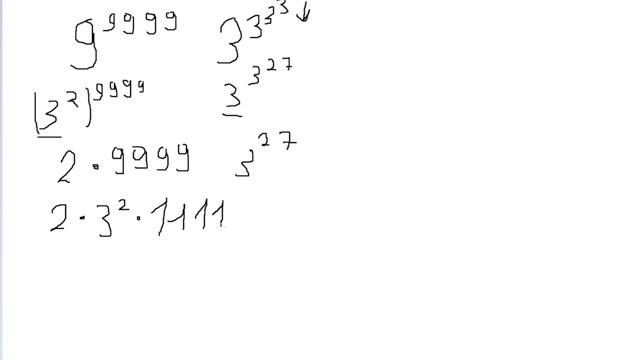 9^9999 3^3^3^3^3 ↓
(3^2)^9999 3^3^27
2 · 9999 3^27
2 · 3^2 · 1111